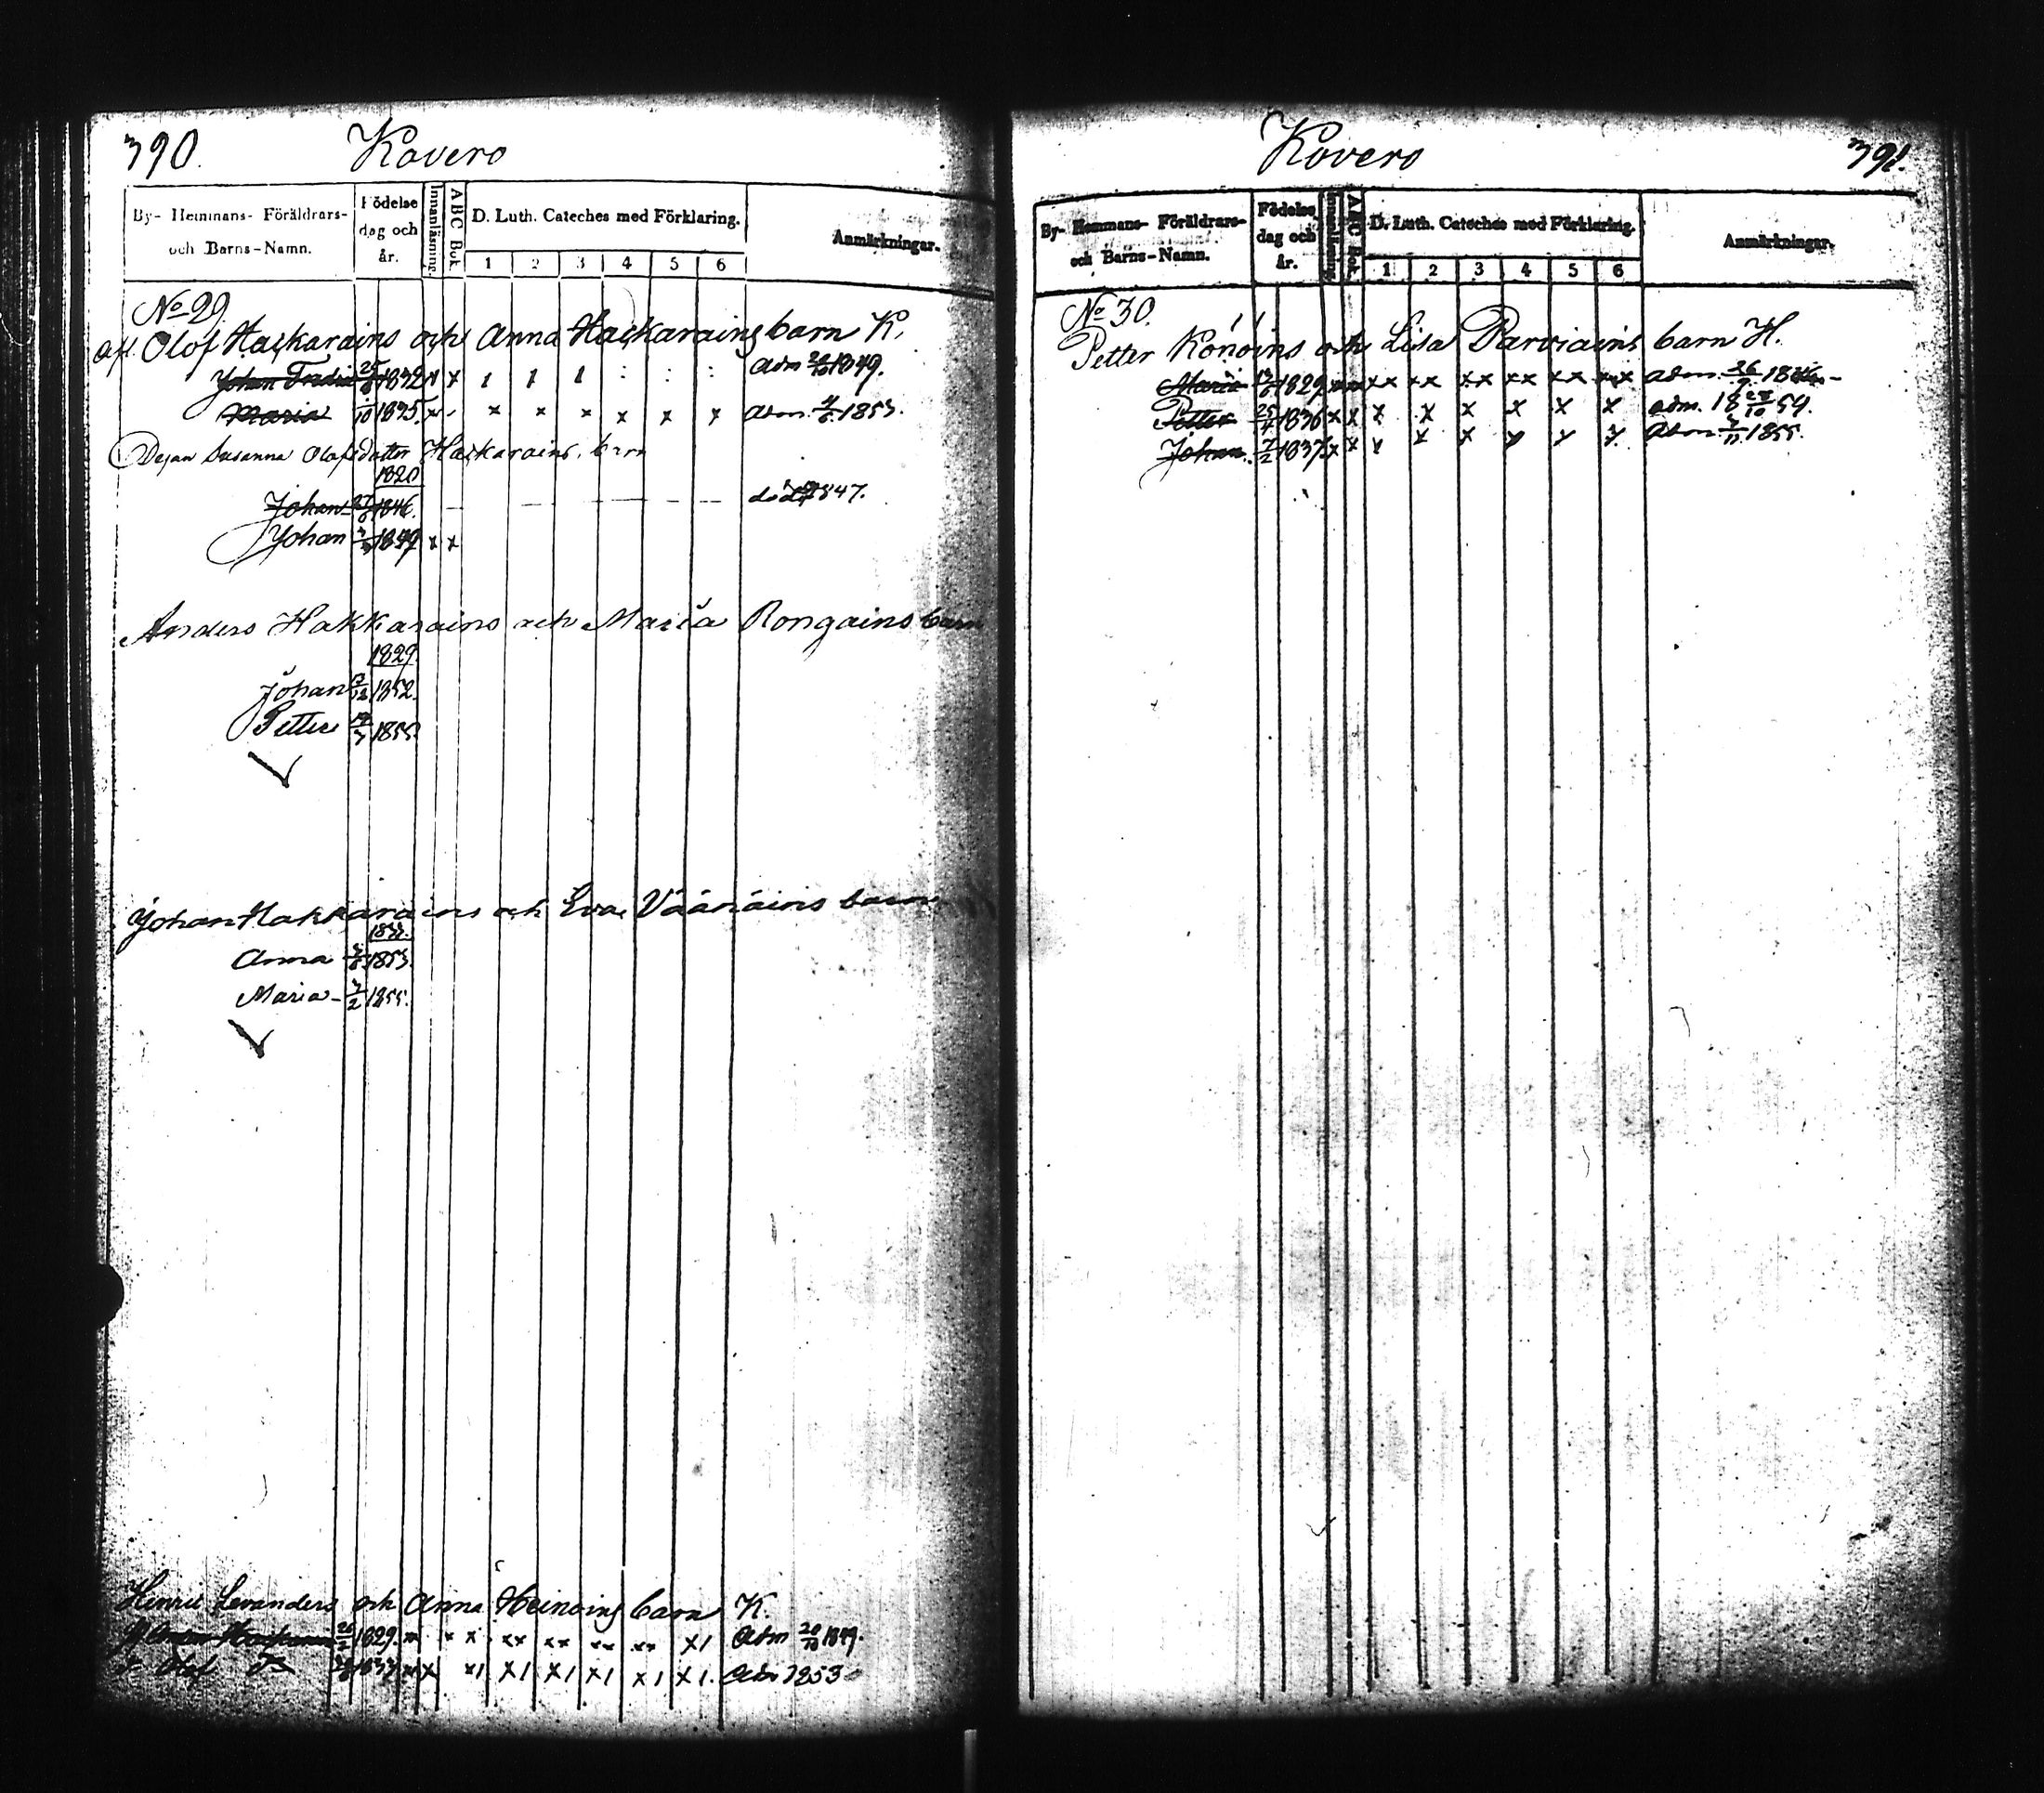 390.
Kovero
By- Hemmans- Föräldrars- och Barns-Namn.
Födelse dag och år.
Innanläsning.
ABC Bok.
D. Luth. Cateches med Förklaring.
1 2 3 4 5 6
Anmärkningar.
No 29.
afl. Olof Hackarains och Anna Hackarains barn K.
Johan 1832 x x 1 1 1 : : : adm 1849.
Maria 1835. x - x x x x x x adm. 1853.
Susanna Olofsdotter Hackarains barn
1820
Johan 1846. död 1847.
Johan 1849 x x
Anders Hakkarains och Maria Rongains barn
1829.
Johan 13/12 1852.
Petter 1855.
Johan Hakkarains och Eva Väänäins barn
1833.
Anna 1853.
Maria - 3/2 1855.
Henric Levanders och Anna Heinoins barn K.
1829. x x x xx xx xx xx x1 adm 20/10 1849.
Olof x x1 x1 x1 x1 x1 x1. adm 1853
Kovero
391.
By- Hemmans- Föräldrars- och Barns-Namn.
Födelse dag och år.
Innanläsning.
ABC Bok.
D. Luth. Cateches med Förklaring.
1 2 3 4 5 6
Anmärkningar.
No 30.
Petter Konoins och Lisa Parviains barn H.
Maria 1829. xx xx xx xx xx xx adm. 26/9
Petter 1836 x x x x x x x x adm. 18 54.
Johan. 7/2 1837. x x x x x y y y adm. 1855.